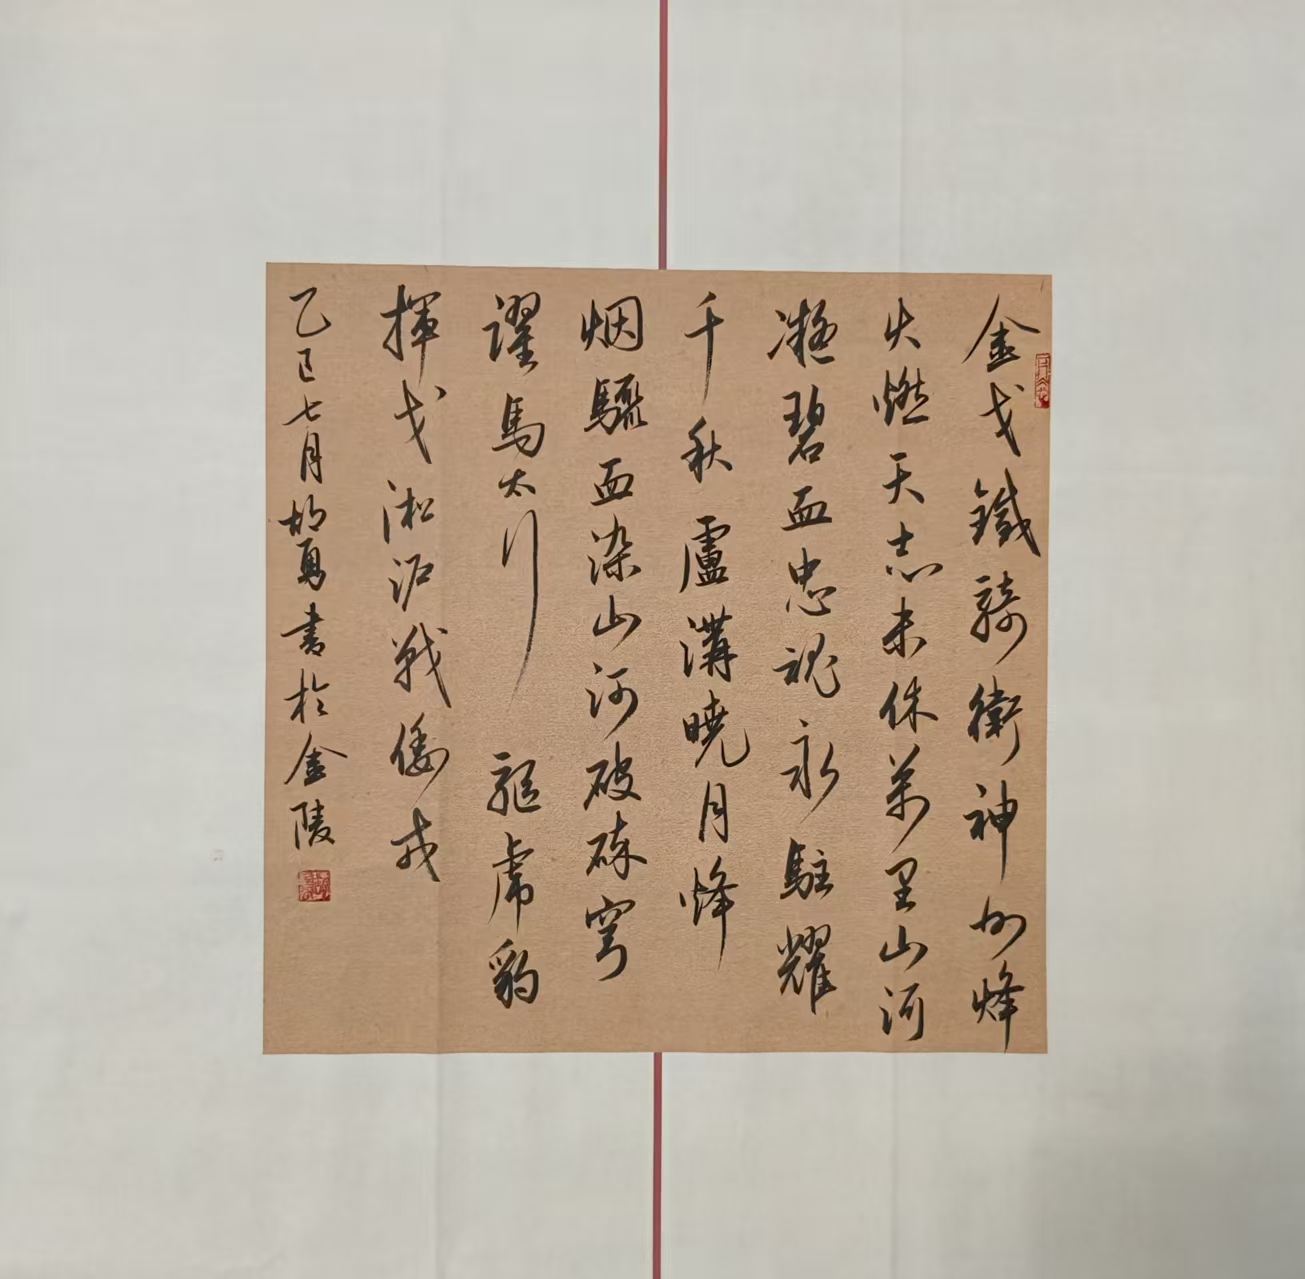 金戈鐵騎衛神州烽
火燃天志未休萬里山河
凝碧血忠魂永駐耀
千秋盧溝曉月烽
烟驟血染山河破碎穹
躍馬太行驅虎豹
揮戈淞沪戰倭戎
乙巳七月胡勇書於金陵